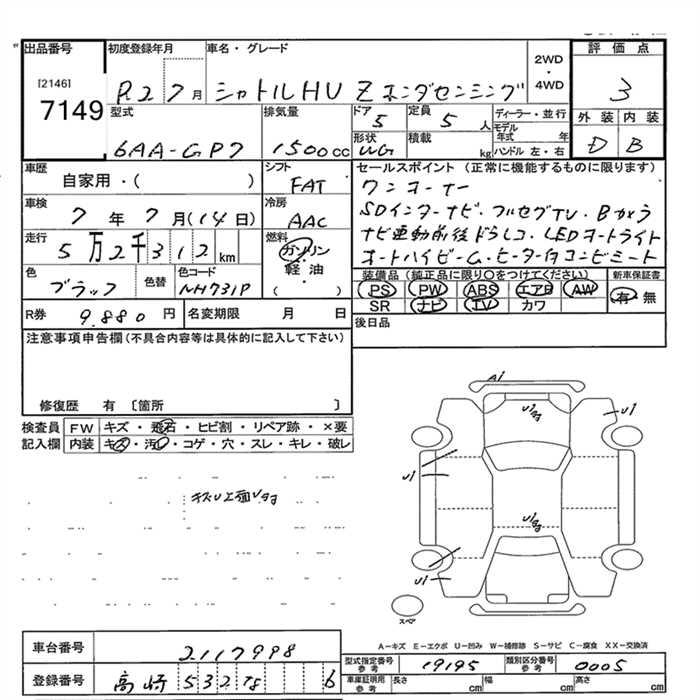 出品番号
[2146]
7149
初度登録年月
R2 7月
車名・グレード
シャトルHV Z ホンダセンシング
2WD
・
4WD
評価点
3
型式
6AA-GP7
排気量
1500cc
ドア
5
定員
5人
ディーラー・並行
形状
WG
積載
kg
モデル年式 年
ハンドル 左・右
外装 内装
D B
車歴
自家用・( )
シフト
FAT
車検
7年7月(14日)
冷房
AAC
走行
5万2千312km
燃料
ガソリン
軽油
・
( )
色
ブラック
色替
色コード
NH731P
R券
9.880円
名変期限 月 日
セールスポイント (正常に機能するものに限ります)
ワンオーナー
SDインターナビ・フルセグTV・Bカメラ
ナビ連動前後ドラレコ・LEDオートライト
オートハイビーム・ヒーター付コンビシート
装備品 (純正品に限り〇をつけてください)
新車保証書
PS PW ABS エアB AW
有・無
SR ナビ TV カワ
後日品
注意事項申告欄(不具合内容等は具体的に記入して下さい)
修復歴 有 〔箇所 〕
検査員
記入欄
FW キズ・飛石・ヒビ割・リペア跡・×要
内装 キズ・汚レ・コゲ・穴・スレ・キレ・破レ
A1
U1
U1
U1
スペア
A-キズ E-エクボ U-凹み W-補修跡 S-サビ C-腐食 XX-交換済
車台番号
2117998
登録番号
高崎 532 6
型式指定番号
参考
19195
類別区分番号
参考
0005
車庫証明用
参考
長さ cm
幅 cm
高さ cm